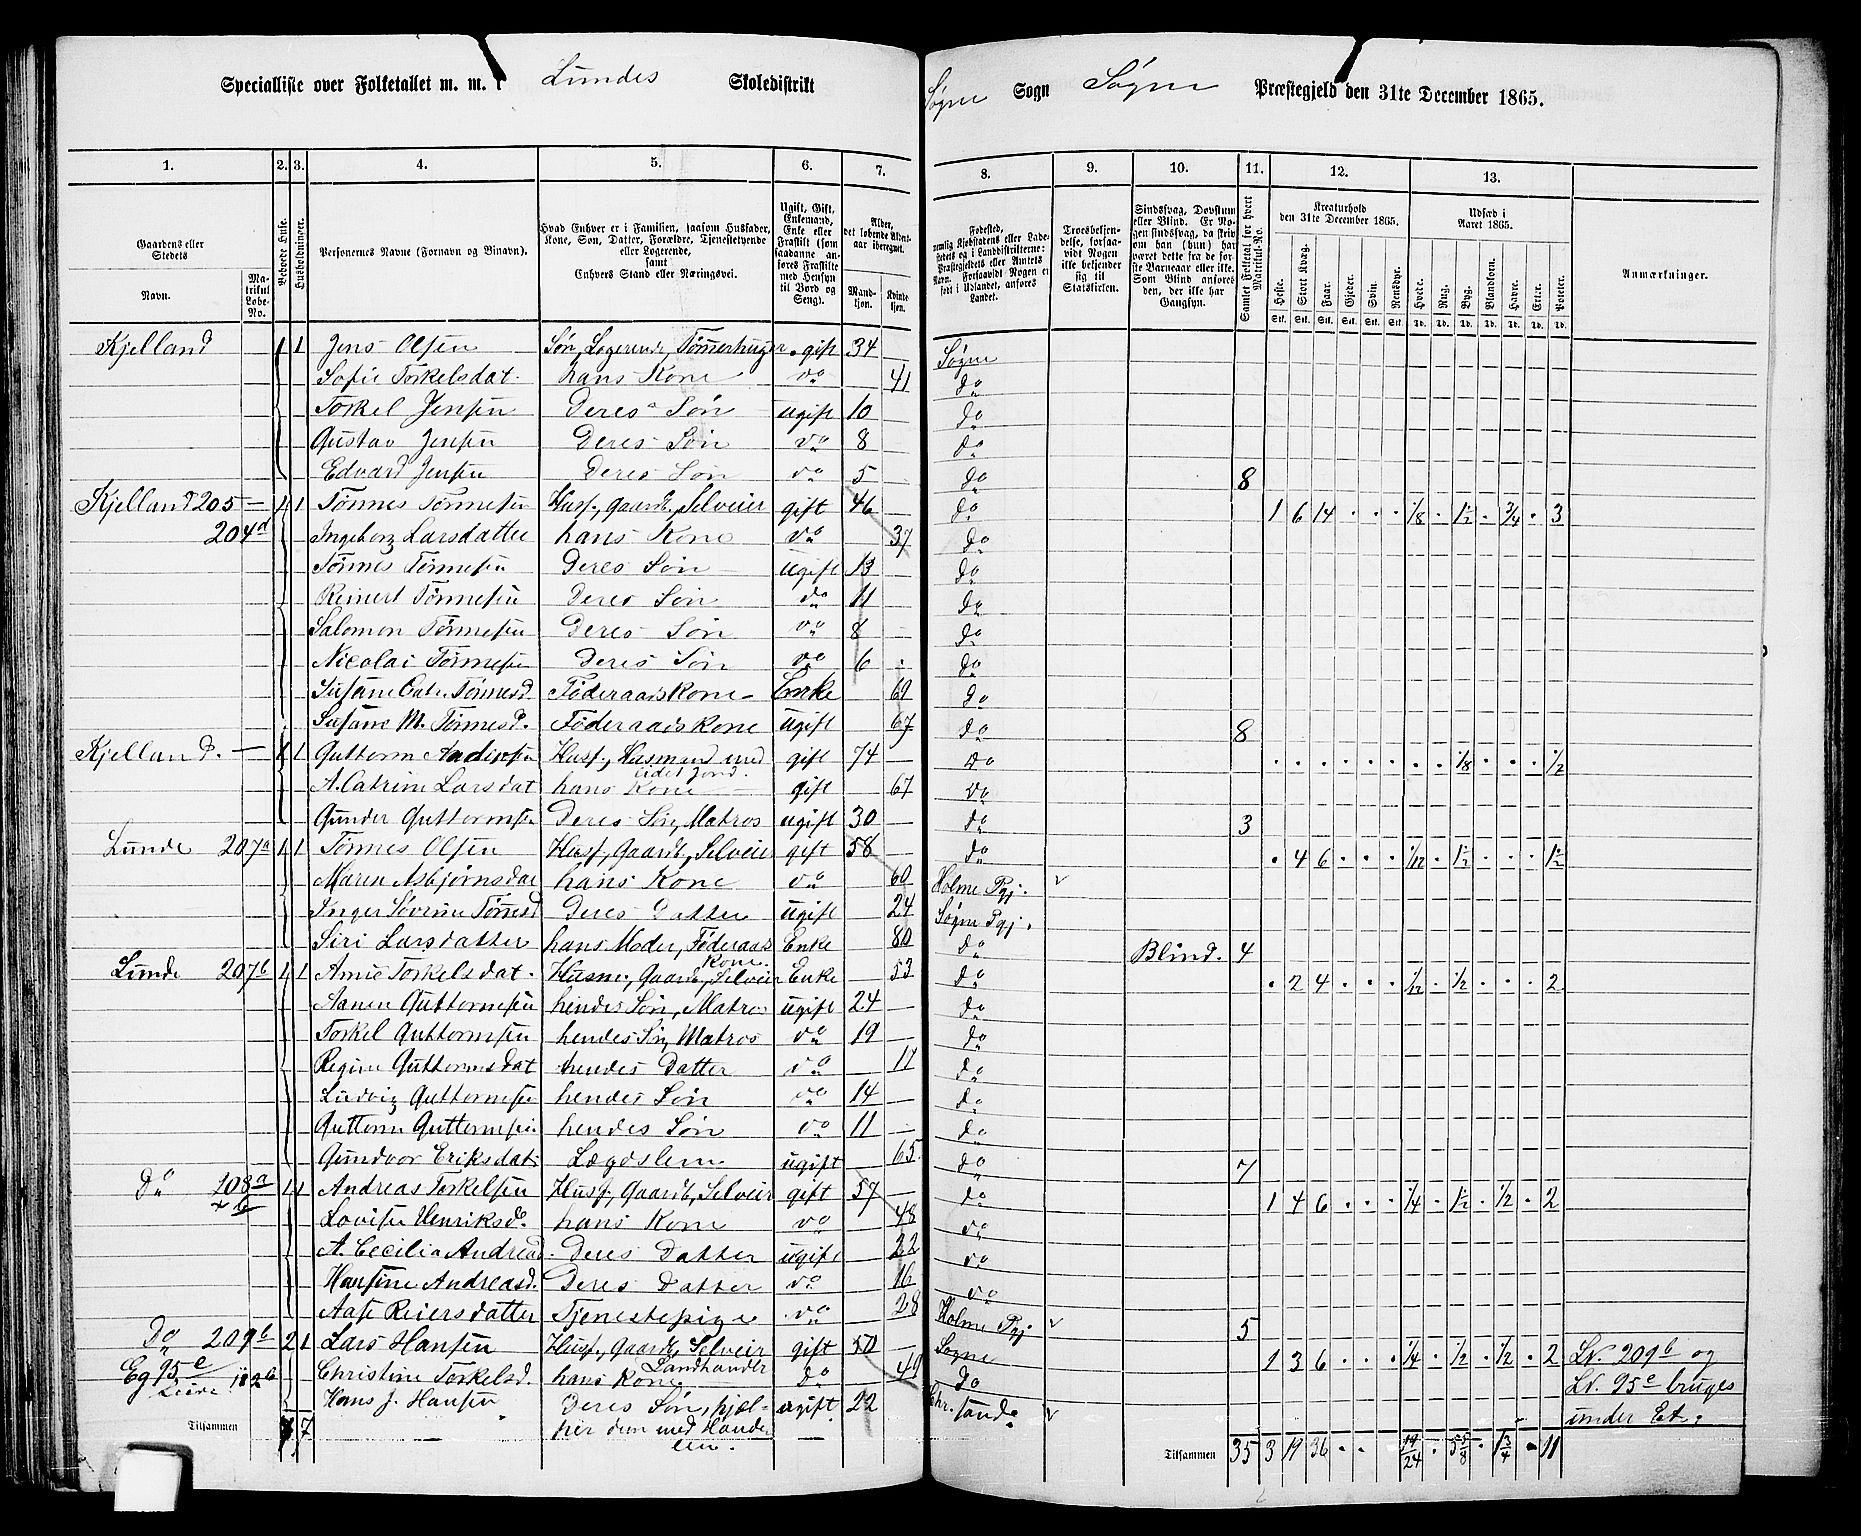 Specialliste over Folketallet m. m. i Lundes Skoledistrikt Søgne Sogn Søgne Præstegjeld den 31te December 1865.
1. 2. 3. 4. 5. 6. 7. 8. 9. 10. 11. 12. 13.
Gaardens eller Stedets Navn. Matrikul Løbe-No. Beboede Huse. Husholdninger. Personernes Navne (Fornavn og Binavn). Hvad Enhver er i Familien, saasom Husfader, Kone, Søn, Datter, Forældre, Tjenestetyende eller Logerende, samt Enhvers Stand eller Næringsvei. Ugift, Gift, Enkemand, Enke eller Fraskilt (som saadanne anføres Fraskilte med Hensyn til Bord og Seng). Alder, det løbende Aldersaar iberegnet. Mandkjøn. Kvindekjøn. Fødested, Troesbekjendelse, forsaavidt Nogen ikke bekjender sig til Statskirken. Sindssvag, Døvstum eller Blind. Samlet Folketal for hvert Matrikul-No. Kreaturhold den 31te December 1865. Heste. Stort Kvæg. Faar. Gjeder. Svin. Rensdyr. Udsæd i Aaret 1865. Hvede. Rug. Byg. Blandkorn. Havre. Erter. Poteter. Anmærkninger.
Kjelland 1 1 Jens Olsen Søn, Logerende, Tømmerhugger gift 34 Søgne
Sofie Torkelsdat. hans Kone do 41 do
Torkel Jensen Deres Søn ugift 10 do
Gustav Jensen Deres Søn do 8 do
Edvard Jensen Deres Søn do 5 do 8
Kjelland 205 1 1 Tønnes Tønnesen Husf., Gaardb. Selveier gift 46 do 1 6 14 . . . 1/8 . 1½ . 3/4 . 3
204d Ingeborg Larsdatter hans Kone do 37 do
Tønnes Tønnesen Deres Søn ugift 13 do
Reinert Tønnesen Deres Søn do 11 do
Salomon Tønnesen Deres Søn do 8 do
Nicolai Tønnesen Deres Søn do 6 do
Susane Catr. Tønnesd. Føderaadskone Enke 69 do
Susane M. Tønnesd. Føderaadskone ugift 67 do 8
Kjelland. 1 1 Guttorm Andersen Husf., Husmand med gift 74 do . . . . . . . . 1/8 . . . 1/2
Jord.
A. Catrine Larsdat hans Kone gift 67 do
Gunder Guttormsen Deres Søn, Matros ugift 30 do 3
Lunde 207a 1 1 Tønnes Olsen Husf, Gaardb, Selveier gift 58 do . 4 6 . . . 1/12 . 1½ . . . 1½
Maren Asbjørnsdat hans Kone do 60 Holme Pgj.
Inger Søverine Tønnesd Deres Datter ugift 24 Søgne Pgj.
Siri Larsdatter hans Moder, Føderaadskone. Enke 80 do Blind. 4
Lunde 207b 1 1 Anne Torkelsdat. Husm., Gaardb, Selveier Enke 53 do . 2 4 . . . 1/12 . 1/2 . . . 2
Aanen Guttormsen hendes Søn, Matros ugift 24 do
Torkel Guttormsen hendes Søn, Matros do 19 do
Regine Guttormsdat hendes Datter do 17 do
Ludvig Guttormsen hendes Søn do 14 do
Guttorm Guttormsen hendes Søn do 11 do
Gundvor Eriksdat. Lægdslem ugift 65 do 7
Do 208a 1 1 Andreas Torkelsen Husf., Gaardb, Selveier gift 57 do 1 4 6 . . . 1/4 . 1½ . 1/2 . 2
+ b Lovise Henriksd. hans Kone do 48 do
A. Cecilia Andreasd. Deres Datter ugift 22 do
Hansine Andreasd. Deres Datter do 16 do
Aase Reiersdatter Tjenestepige do 28 Holme Pgj 5
Do 209b 2 1 Lars Hansen Husf., Gaardb, Selveier gift 50 Søgne 1 3 6 . . . 1/4 . 1/2 . 1/2 . 2 Lr. 209b og
Landhandler
Eg 95e Christine Torkelsd. hans Kone do 49 do Lr. 95e bruges
Hans J. Hansen Deres Søn, hjælper dem med Handelen. ugift 22 Chr.sand. under Et.
Tilsammen 7 7 Tilsammen 35 3 19 36 . . 19/24 . 5 5/8 . 1 3/4 . 11